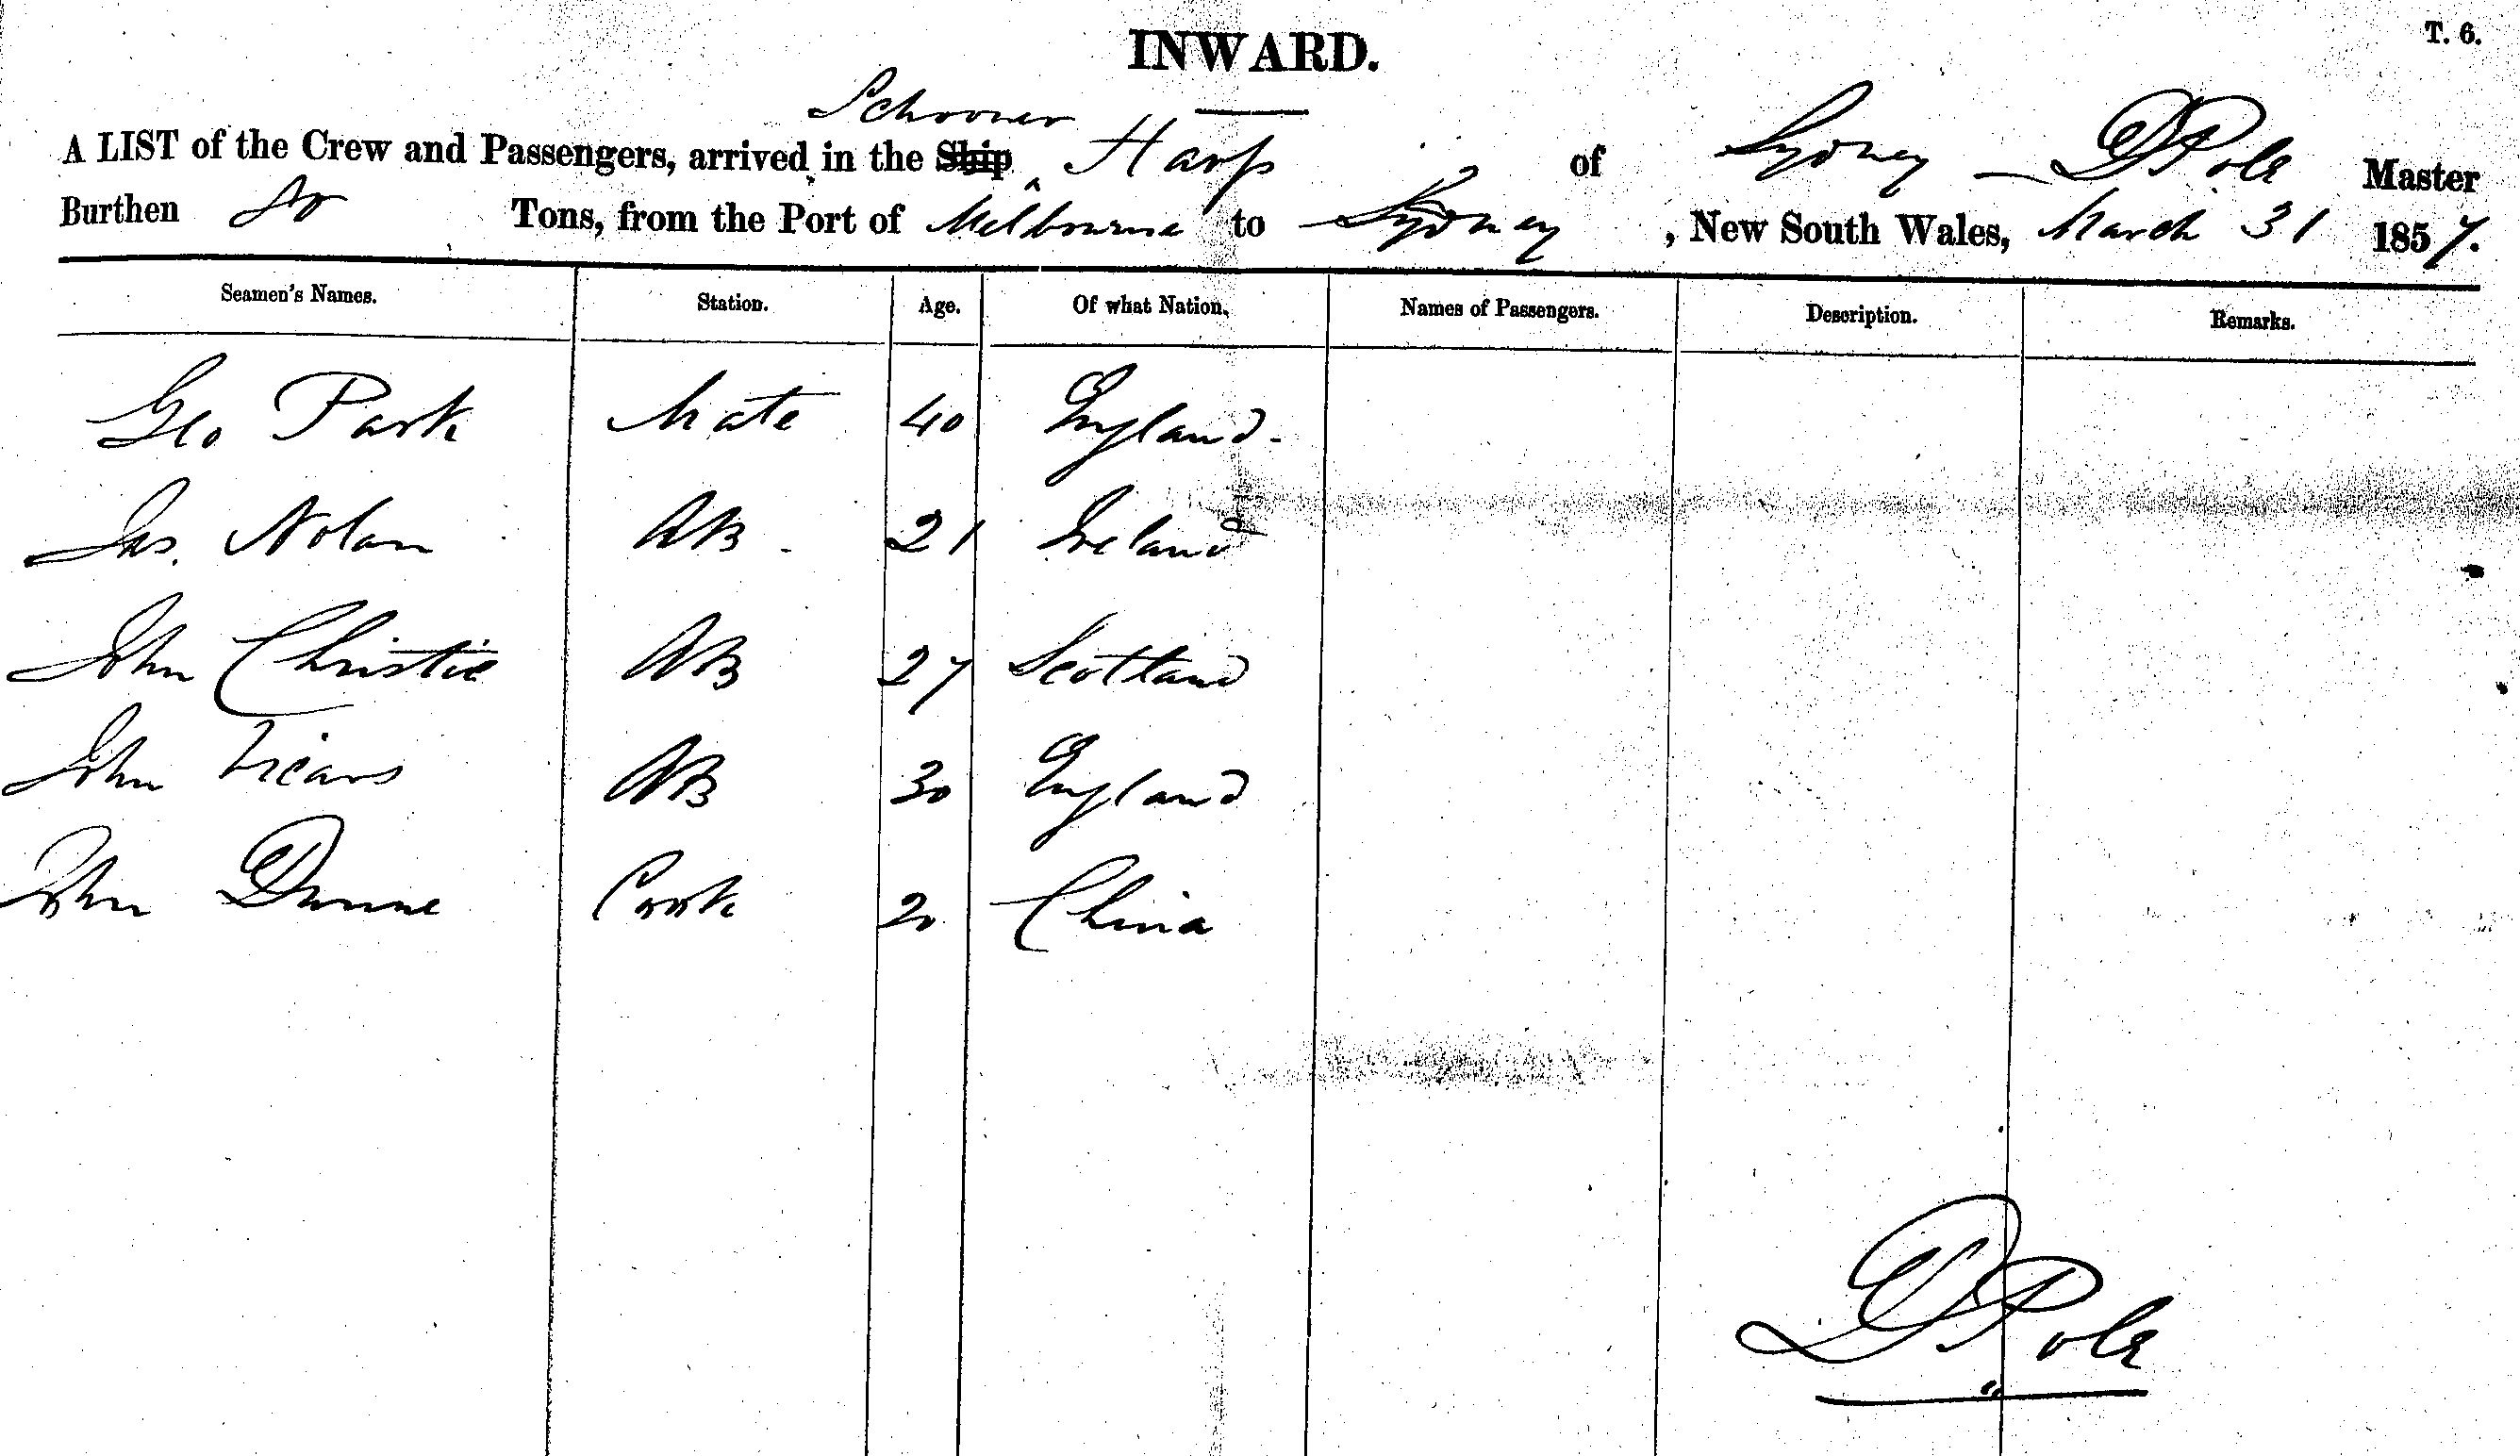 T. 6.
INWARD.
Schooner
A LIST of the Crew and Passengers, arrived in the Ship Harp of Sydney — D Pole Master
Burthen 80 Tons, from the Port of Melbourne to Sydney, New South Wales, March 31 1857.
Seamen's Names. Station. Age. Of what Nation. Names of Passengers. Description. Remarks.
Geo Park Mate 40 England.
Jas. Nolan AB. 21 Ireland
John Christie AB 27 Scotland
John Vicars AB 30 England
John Dunne Cook 20 China
D Pole